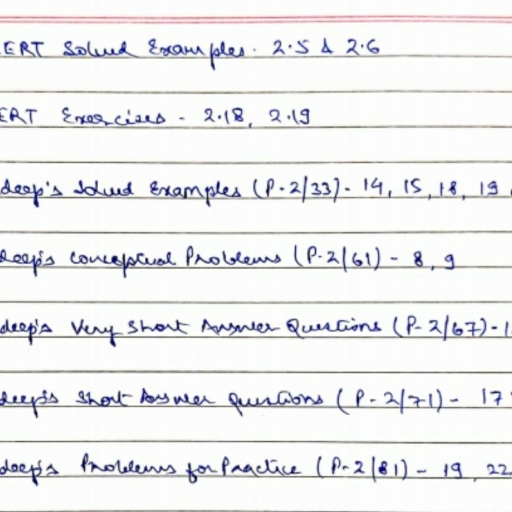 ERT Solved Examples. 2.5 & 2.6
ERT Exercises - 2.18, 2.19
deep's Solved Examples (P-2/33)- 14, 15, 18, 19
deep's Conceptual Problems (P-2/61) - 8, 9
deep's Very Short Answer Questions (P-2/67)-1
deep's Short Answer Questions (P-2/71) - 17
deep's Problems for Practice (P-2/81) - 19, 22